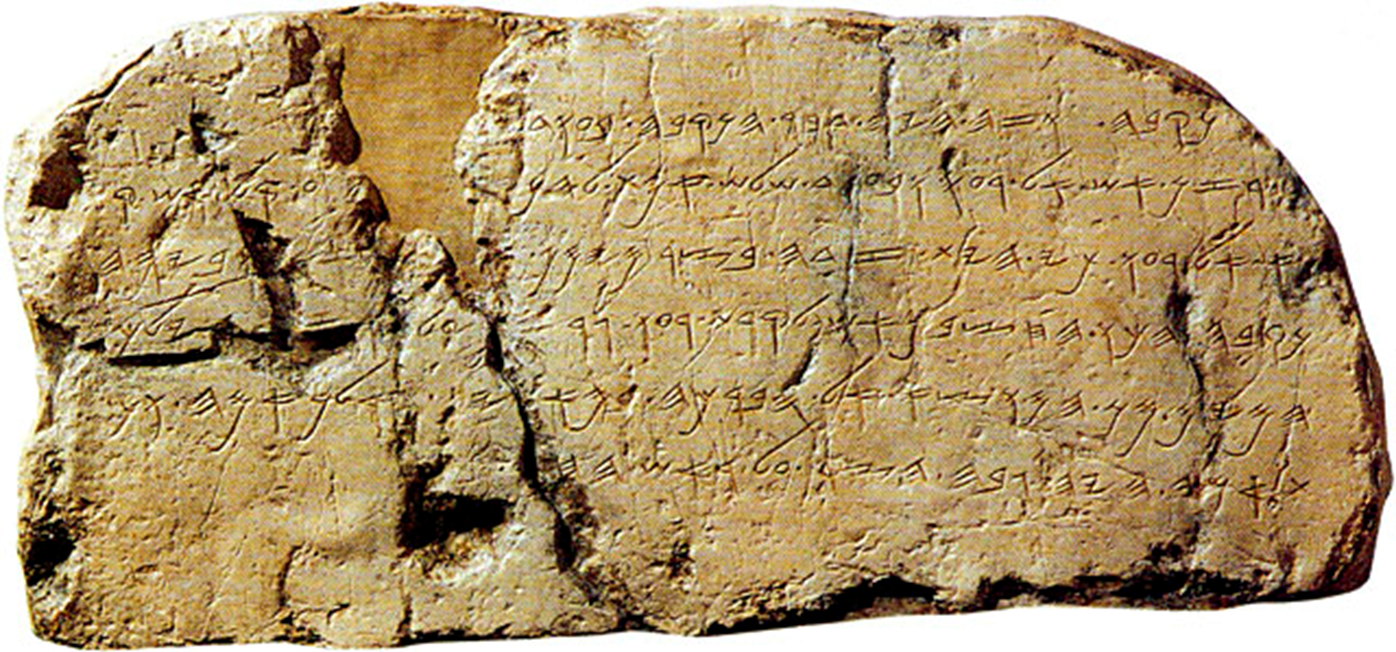 𐤍𐤒𐤁𐤄 . 𐤅𐤆𐤄 . 𐤄𐤉𐤄 . 𐤃𐤁𐤓 . 𐤄𐤍𐤒𐤁𐤄 . 𐤁𐤏𐤅𐤃
𐤂𐤓𐤆𐤍 . 𐤀𐤔 . 𐤀𐤋 . 𐤓𐤏𐤅 . 𐤅𐤁𐤏𐤅𐤃 . 𐤔𐤋𐤔 . 𐤀𐤌𐤕 . 𐤋𐤄𐤍 𐤏 . 𐤒𐤋 . 𐤀𐤔 . 𐤒
𐤀 . 𐤀𐤋 . 𐤓𐤏𐤅 . 𐤊𐤉 . 𐤄𐤉𐤕 . 𐤆𐤃𐤄 . 𐤁𐤑𐤓 . 𐤌𐤉𐤌𐤍 𐤅𐤁𐤉𐤌 . 𐤄
𐤍𐤒𐤁𐤄 . 𐤄𐤊𐤅 . 𐤄𐤇𐤑𐤁𐤌 . 𐤀𐤔 . 𐤋𐤒𐤓𐤕 . 𐤓𐤏𐤅 . 𐤂𐤓𐤆𐤍 . 𐤏𐤋 . 𐤓𐤆𐤍 . 𐤅𐤉𐤋𐤊𐤅
𐤄𐤌𐤉𐤌 . 𐤌𐤍 . 𐤄𐤌𐤅𐤑𐤀 . 𐤀𐤋 . 𐤄𐤁𐤓𐤊𐤄 . 𐤁𐤌𐤀𐤕𐤉𐤌 . 𐤅𐤀𐤋𐤐 . 𐤀𐤌𐤄 . 𐤅𐤌
𐤀𐤕 . 𐤀𐤌𐤄 . 𐤄𐤉𐤄 . 𐤂𐤁𐤄 . 𐤄𐤑𐤓 . 𐤏𐤋 . 𐤓𐤀𐤔 . 𐤄𐤇𐤑𐤁